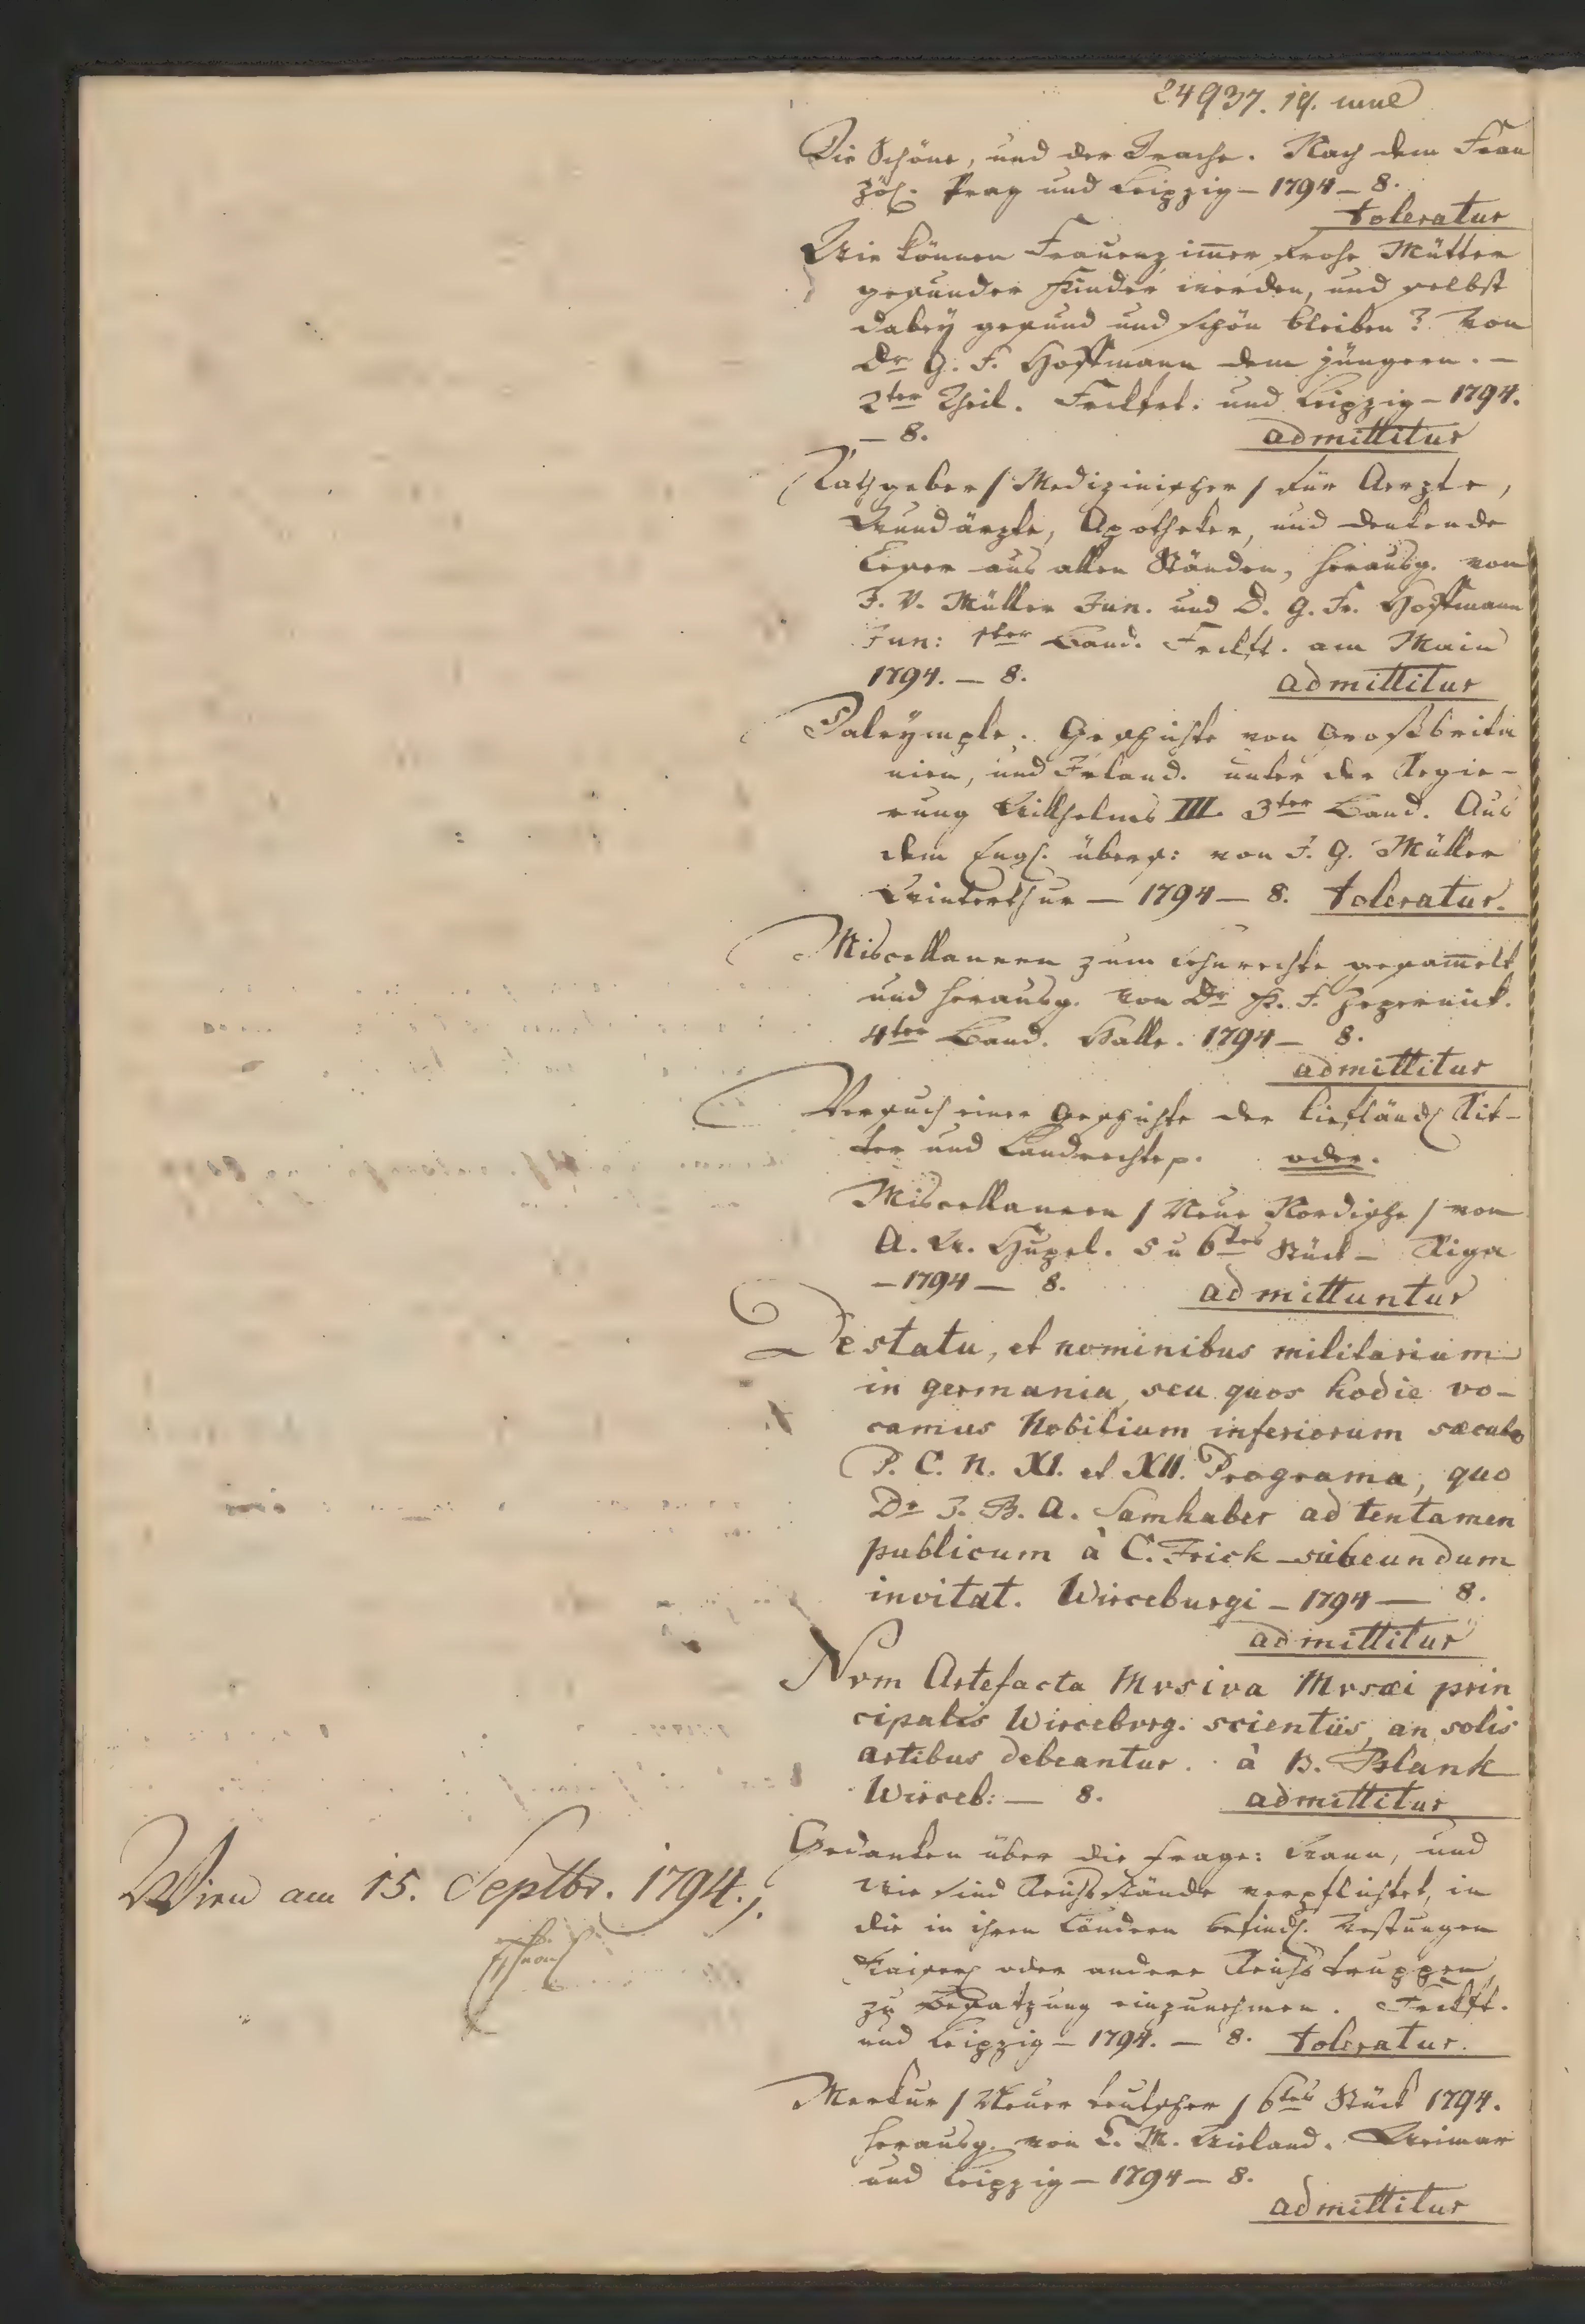 24937.
Die Schöne, und der Drache. Nach dem Fran
zös. Prag und Leipzig – 1794 – 8.
toleratur
Wie können Frauenzim̅er frohe Mütter
gesunder Kinder werden, und selbst
dabeÿ gesund und schön bleiben? Von
Dr G. F. Hoffmann dem jüngern. –
2ter Theil. Frckfrt. und Leipzig – 1794.
– 8. admittitur
Rathgeber / Medizinischer / für Aerzte,
Wundärzte, Apotheker, und denkende
Leser aus allen Ständen, herausg. von
J. V. Müller Jun. und D. G. Fr. Hoffmann
Jun: 1ter Band. Frckft. am Main
1794. – 8. admittitur
Dalrÿmple. Geschichte von Großbrita
nien, und Irland. unter der Regie-
rung Wilhelms III. 3ter Band. Aus
dem Engl. übers: von J. G. Müller
Winterthur – 1794 – 8. toleratur.
Miscellaneen zum Lehnrechte gesam̅elt
und herausg. von Dr K. F. Zepernick.
4ter Band. Halle. 1794 – 8.
admittitur
Versuch einer Geschichte der Liefländ. Rit-
ter und Landrechte p. oder.
Miscellaneen / Neue Nordische / von
A. W. Hupel. 5 u 6tes Stück – Riga
– 1794 – 8. admittuntur
De statu, et nominibus militarium
in germania, seu quos hodie vo-
camus Nobilium inferiorum sæculo
P. C. N. XI. et XII. Programa, quo
Dr J. B. A. Samhaber ad tentamen
publicum à C. Frick subeundum
invitat. Wirceburgi – 1794 – 8.
admittitur
Nvm Artefacta Mvsiva Mvsæi prin
cipalis Wircebvrg. scientiis, an solis
artibus debeantur. à B. Blank
Wirceb: – 8. admittitur
Gedanken über die Frage: Wann, und
Wien am 15. Septbr. 1794.
wie sind Reichsstände verpflichtet, in
die in ihren Ländern befindl. Vestungen
Kaiserl. oder andere Reichstruppen
zu Besatzung einzunehmen. Frckft.
und Leipzig – 1794. – 8. toleratur.
Merkur / Neuer teutscher / 6tes Stück 1794.
herausg. von C. M. Wieland. Weimar
und Leipzig – 1794 – 8.
admittitur